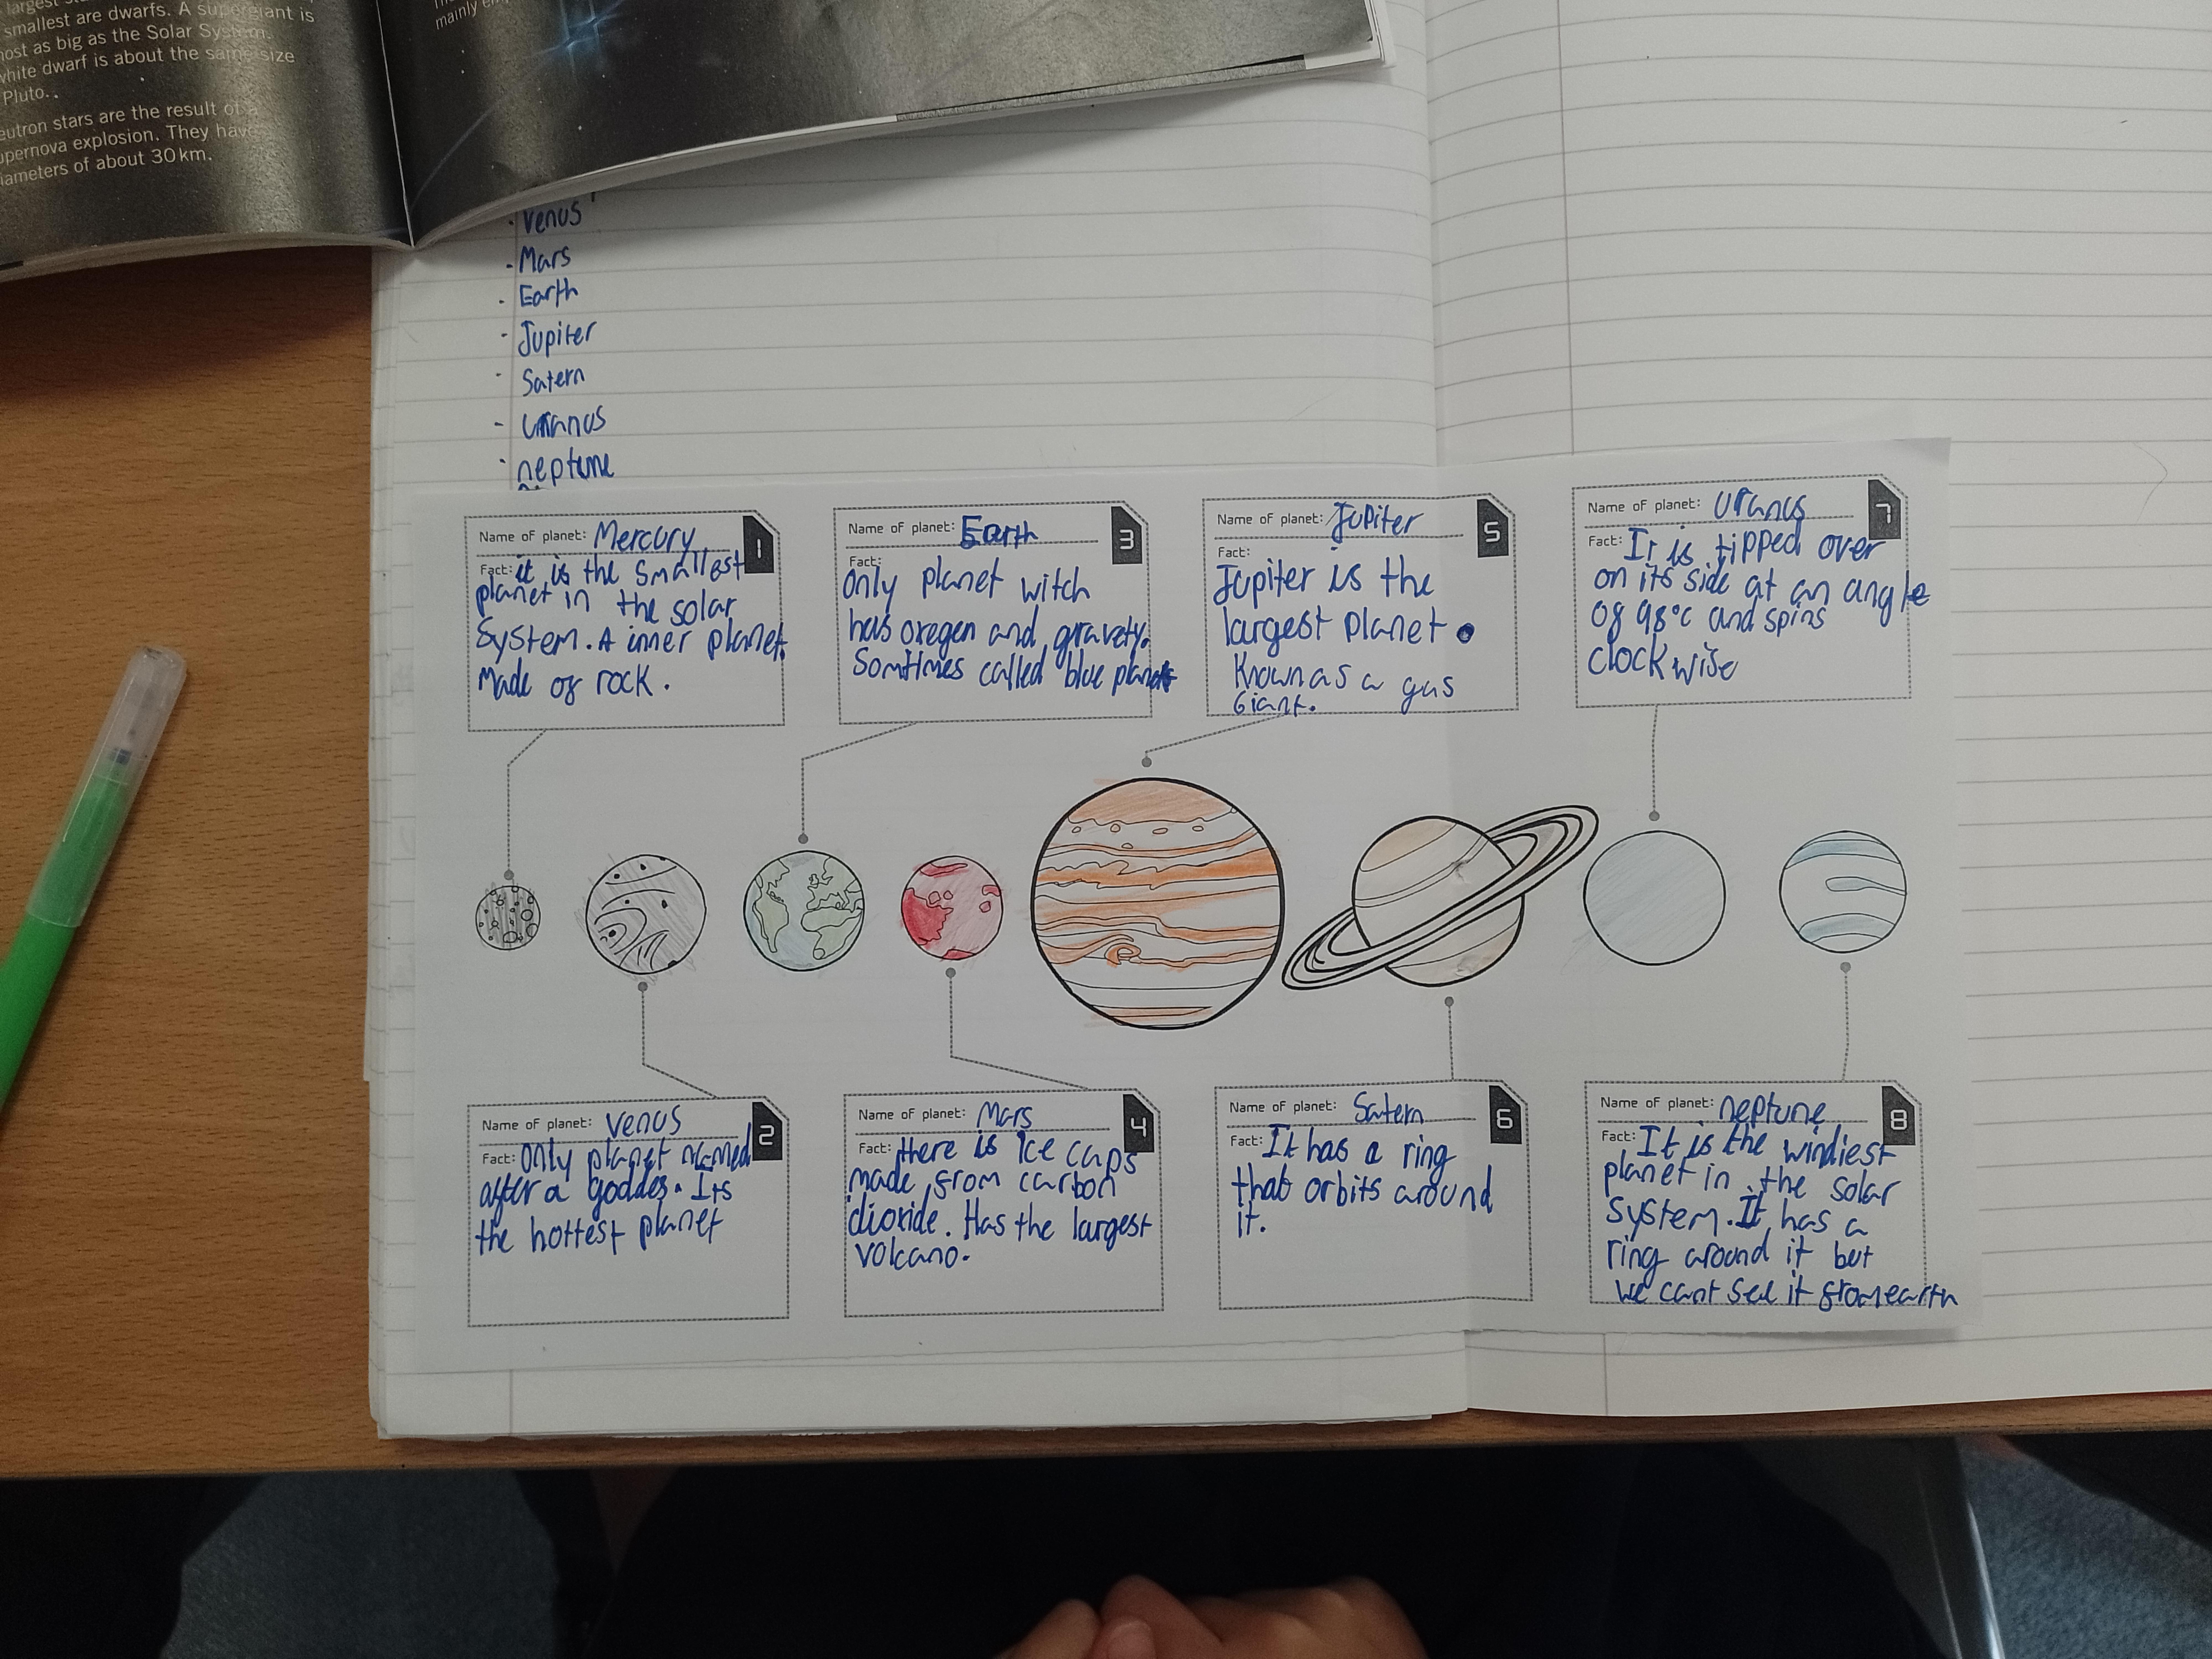 largest
smallest are dwarfs. A supergiant is
most as big as the Solar System.
white dwarf is about the same size
Pluto.
eutron stars are the result of a
upernova explosion. They have
iameters of about 30 km.
mainly
· Venus
· Mars
· Earth
· Jupiter
· Satern
- uranus
· neptune
Name of planet: Mercury
1
Fact: it is the smallest
planet in the solar
System. A inner planet.
Made of rock.
Name of planet: Earth
3
Fact:
Only planet witch
has oxegen and gravety.
Somtimes called blue planet
Name of planet: Jupiter
5
Fact:
Jupiter is the
largest planet.
Known as a gas
Giant.
Name of planet: Uranus
7
Fact: It is tipped over
on its side at an angle
of 98°c and spins
clockwise
Name of planet: Venus
2
Fact: Only planet named
after a goddes. Its
the hottest planet
Name of planet: Mars
4
Fact: there is Ice caps
made from carbon
dioxide. Has the largest
volcano.
Name of planet: Satern
6
Fact: It has a ring
that orbits around
it.
Name of planet: neptune
8
Fact: It is the windiest
planet in the solar
System. It has a
ring around it but
we cant see it from earth